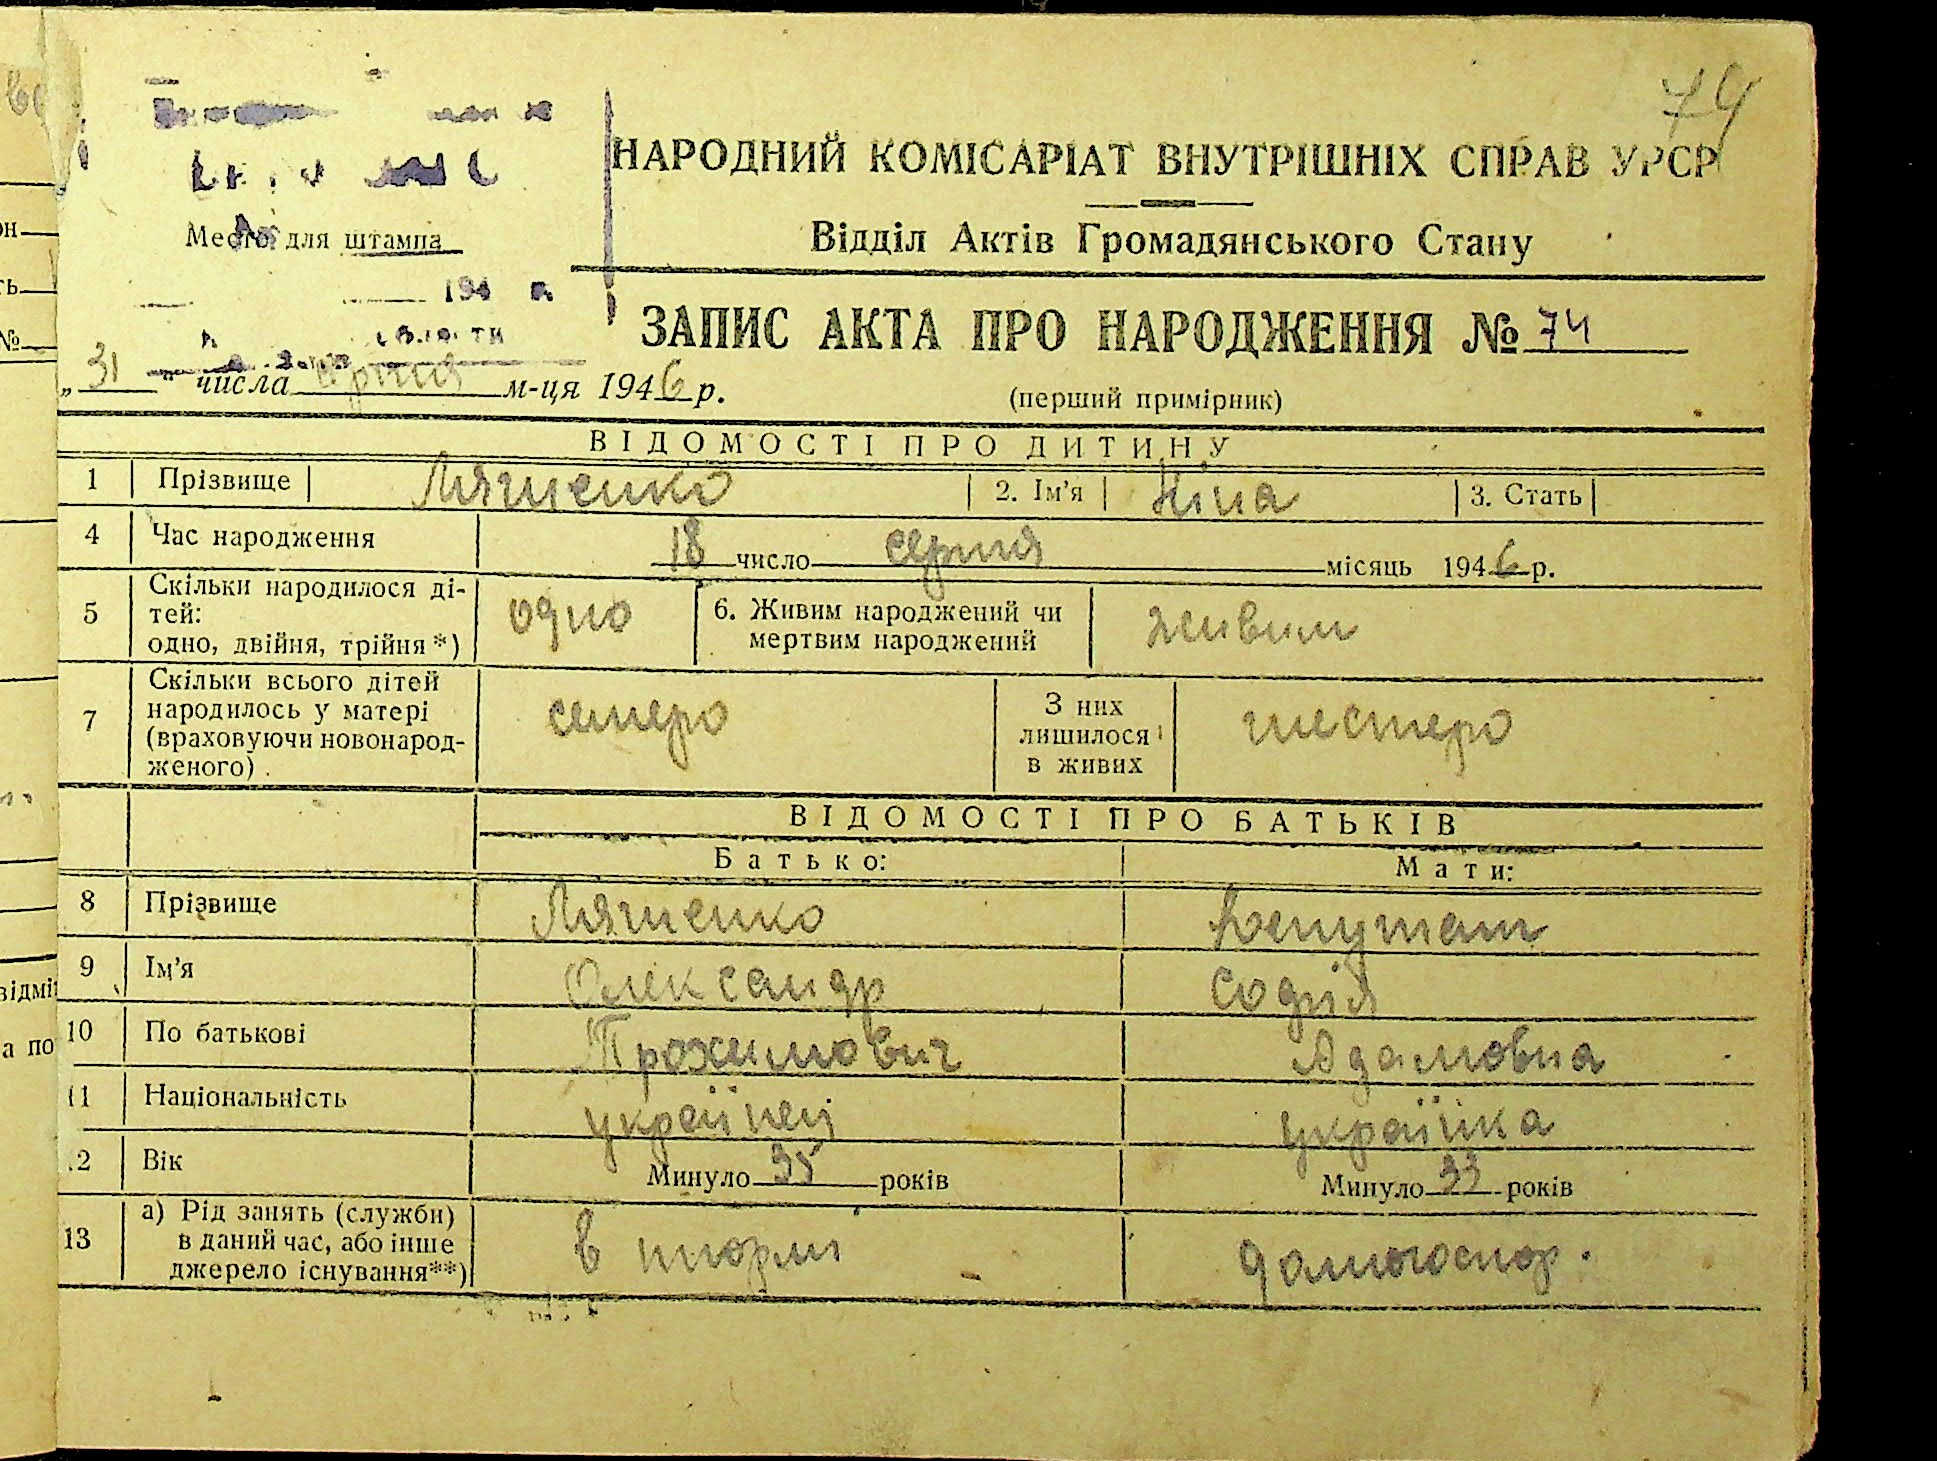 74
НАРОДНИЙ КОМІСАРІАТ ВНУТРІШНІХ СПРАВ УРСР
Відділ Актів Громадянського Стану
Место для штампа
194 р.
ЗАПИС АКТА ПРО НАРОДЖЕННЯ № 74
„31" числа серпня м-ця 1946 р.
(перший примірник)
ВІДОМОСТІ ПРО ДИТИНУ
1 Прізвище Ляшенко 2. Ім'я Ніна 3. Стать
4 Час народження 18 число серпня місяць 1946 р.
5 Скільки народилося ді-
тей:
одно, двійня, трійня *)
одно
6. Живим народжений чи
мертвим народжений
живим
7 Скільки всього дітей
народилось у матері
(враховуючи новонарод-
женого).
семеро
З них
лишилося
в живих
шестеро
ВІДОМОСТІ ПРО БАТЬКІВ
Батько: Мати:
8 Прізвище Ляшенко
9 Ім'я Олександр Софія
10 По батькові Трохимович Адамовна
11 Національність українец українка
12 Вік Минуло 35 років Минуло 33 років
13 а) Рід занять (служби)
в даний час, або інше
джерело існування**)
в тюрмі домогоспор.